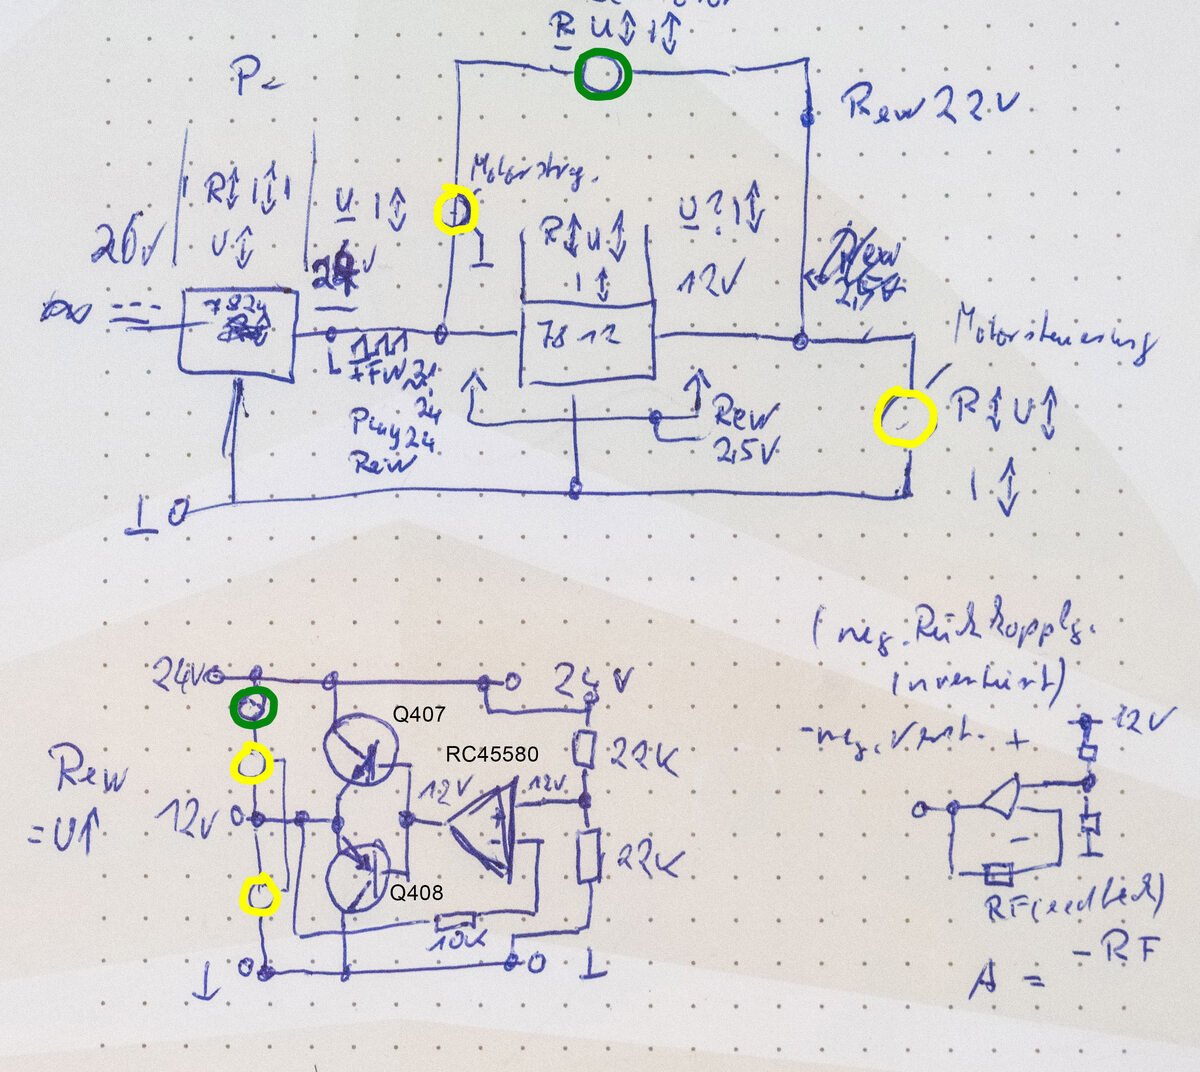 R U↕ I↕
P=
Rew 22V
Motorstrg.
R↕ I↕ I
U I↕
U? I↕
R↕ U↕
26V
U↕
24V
I↕
12V
2,5V
7824
7812
Motorsteuerung
R↕ U↕
Play 24
Rew
Rew
2,5V
I↕
⊥
(neg. Rückkopplg.
Invertiert)
24V
24V
Q407
-neg. Verst. +
12V
RC45580
22K
Rew
12V
12V
12V
= U↑
+
-
22K
Q408
-
10K
RF(eedback)
-RF
A =
⊥
⊥